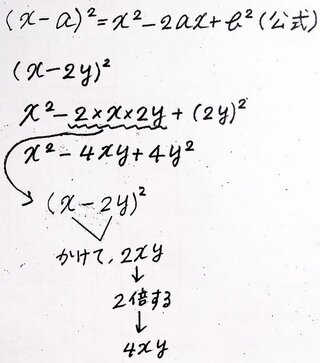 (x-a)²=x²-2ax+b²(公式)
(x-2y)²
x²-2×x×2y+(2y)²
x²-4xy+4y²
(x-2y)²
かけて、2xy
↓
2倍する
↓
4xy